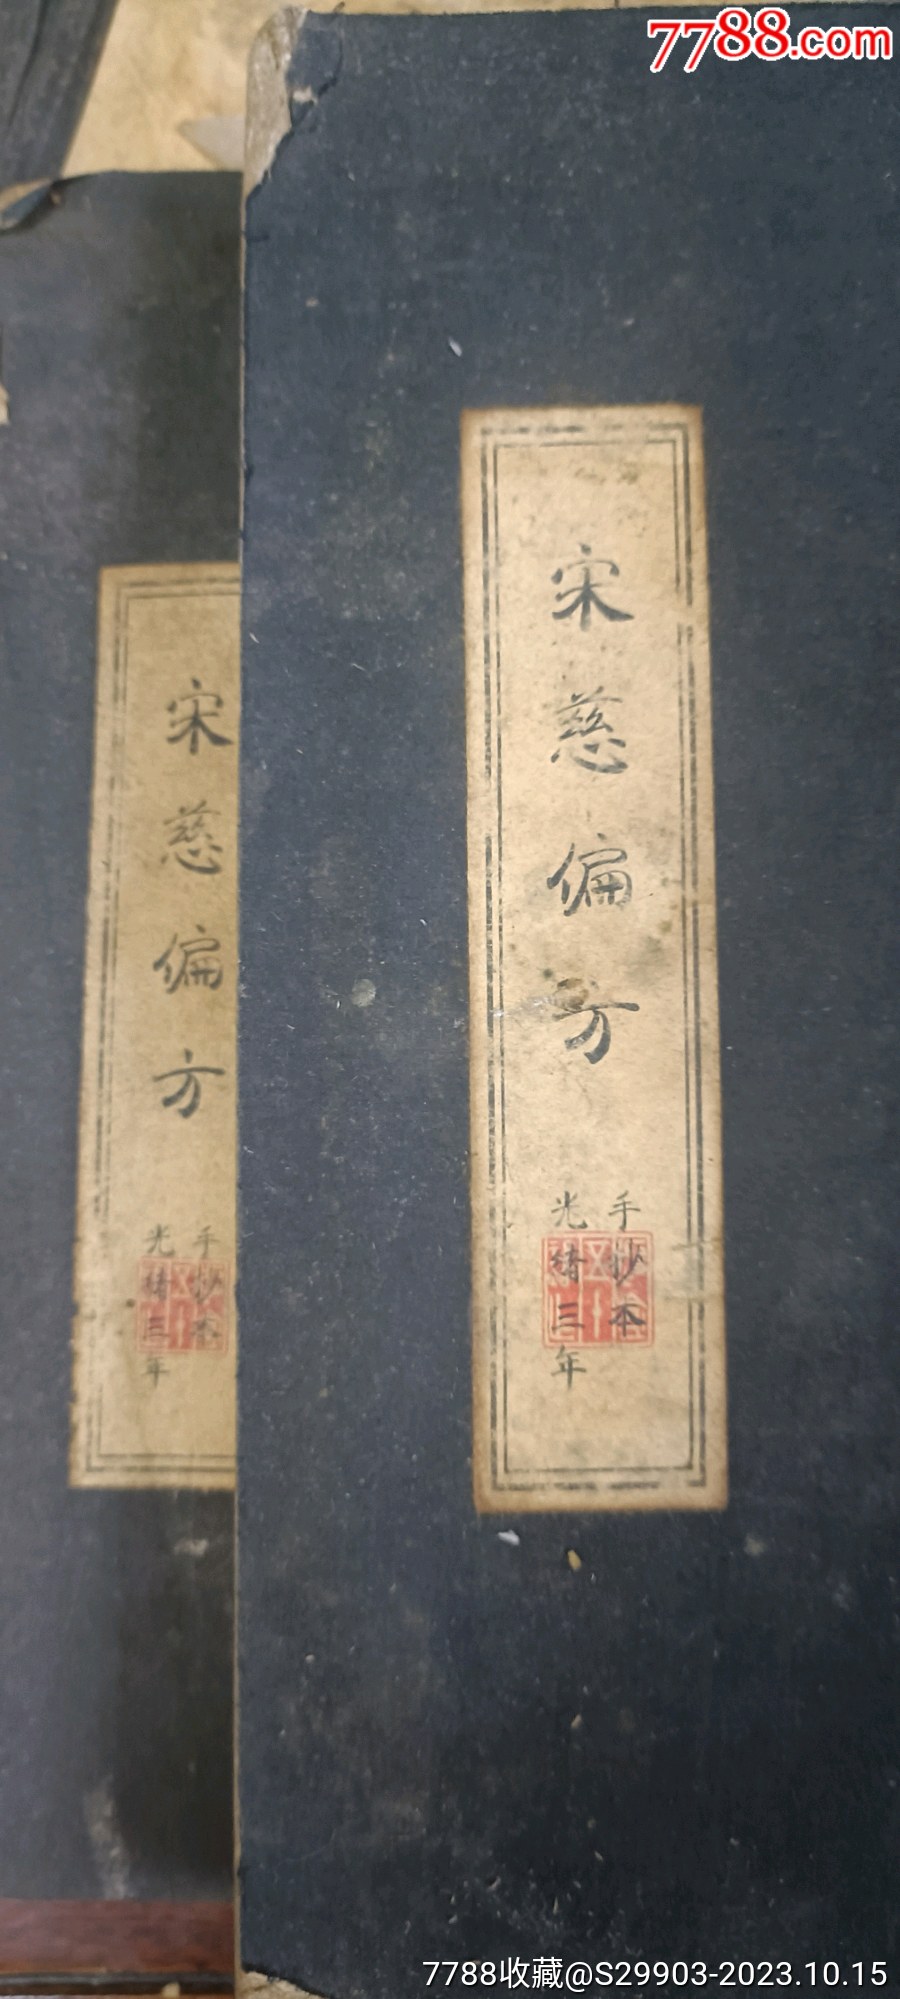 7788.com
宋慈偏方
手抄本
光緒三年
宋慈偏方
手抄本
光緒三年
7788收藏@S29903-2023.10.15